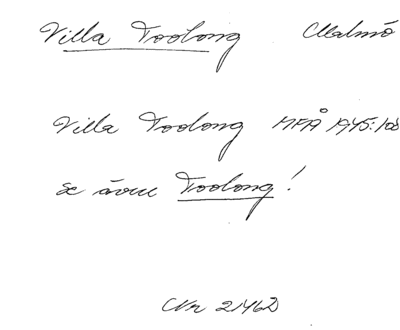 Villa Toolong Malmö
Villa Toolong MFÅ 1945:108
Se även Toolong!
Nr 21462